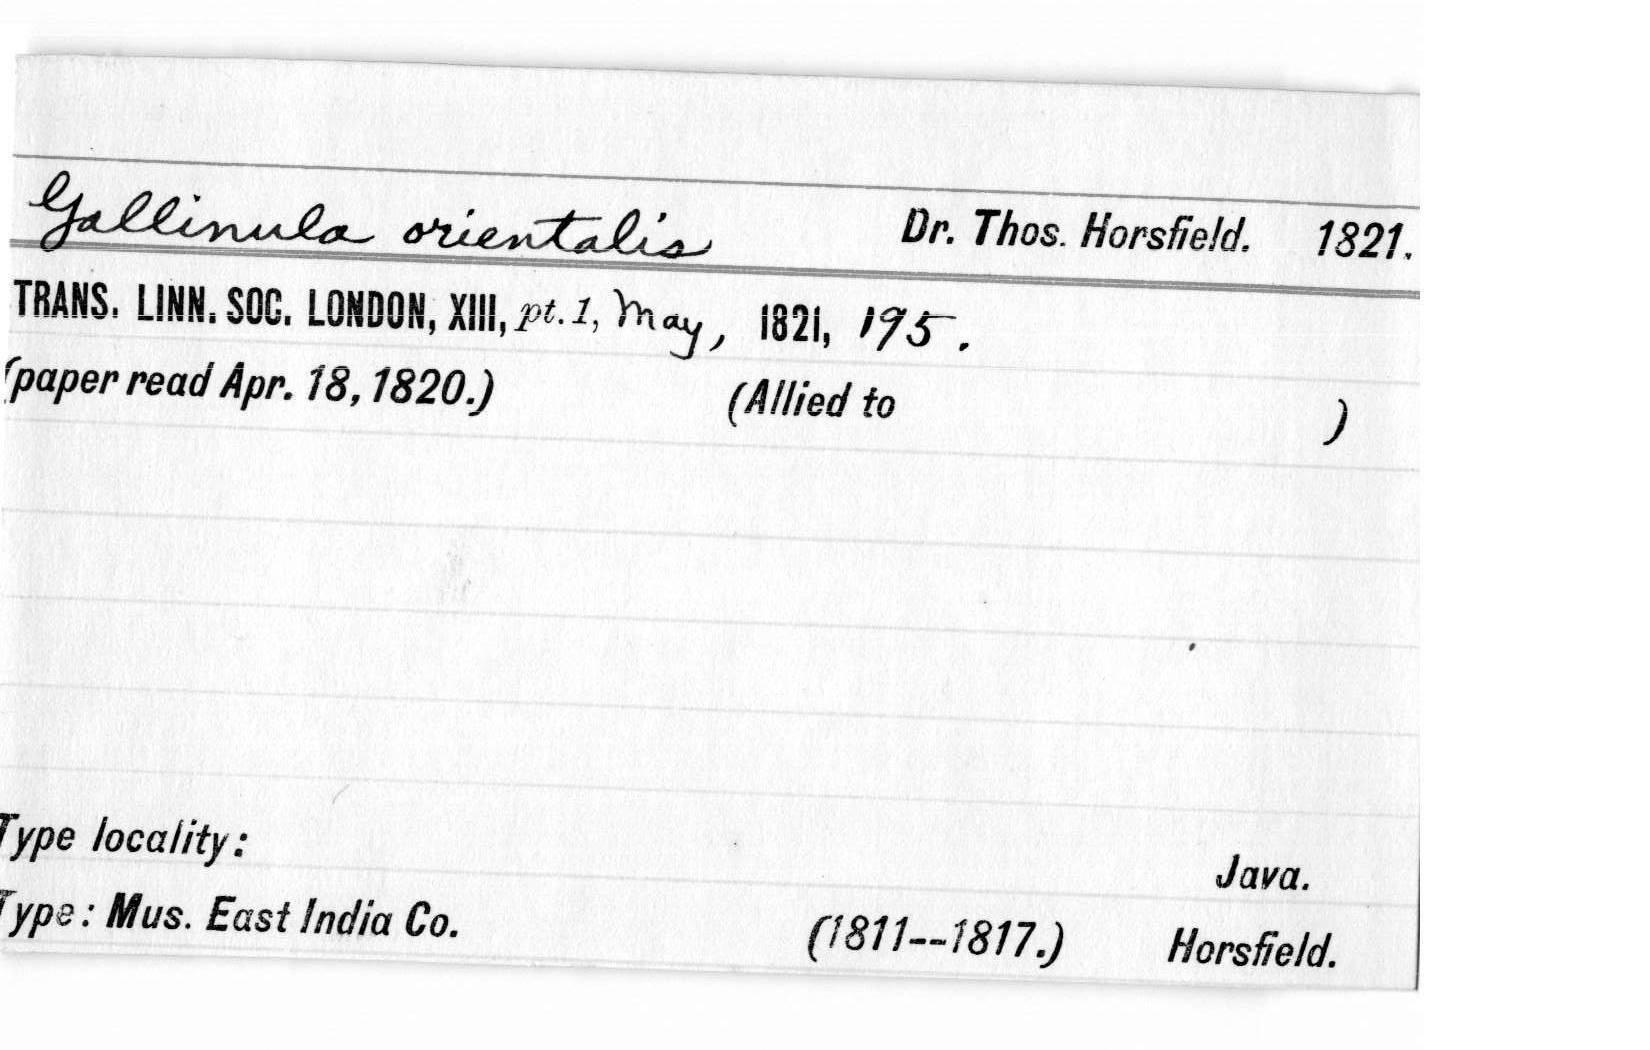 Gallinula orientalis Dr. Thos. Horsfield. 1821.
TRANS. LINN. SOC. LONDON, XIII, pt. 1, May, 1821, 195.
(paper read Apr. 18, 1820.) (Allied to )
Type locality: Java.
Type: Mus. East India Co. (1811--1817.) Horsfield.